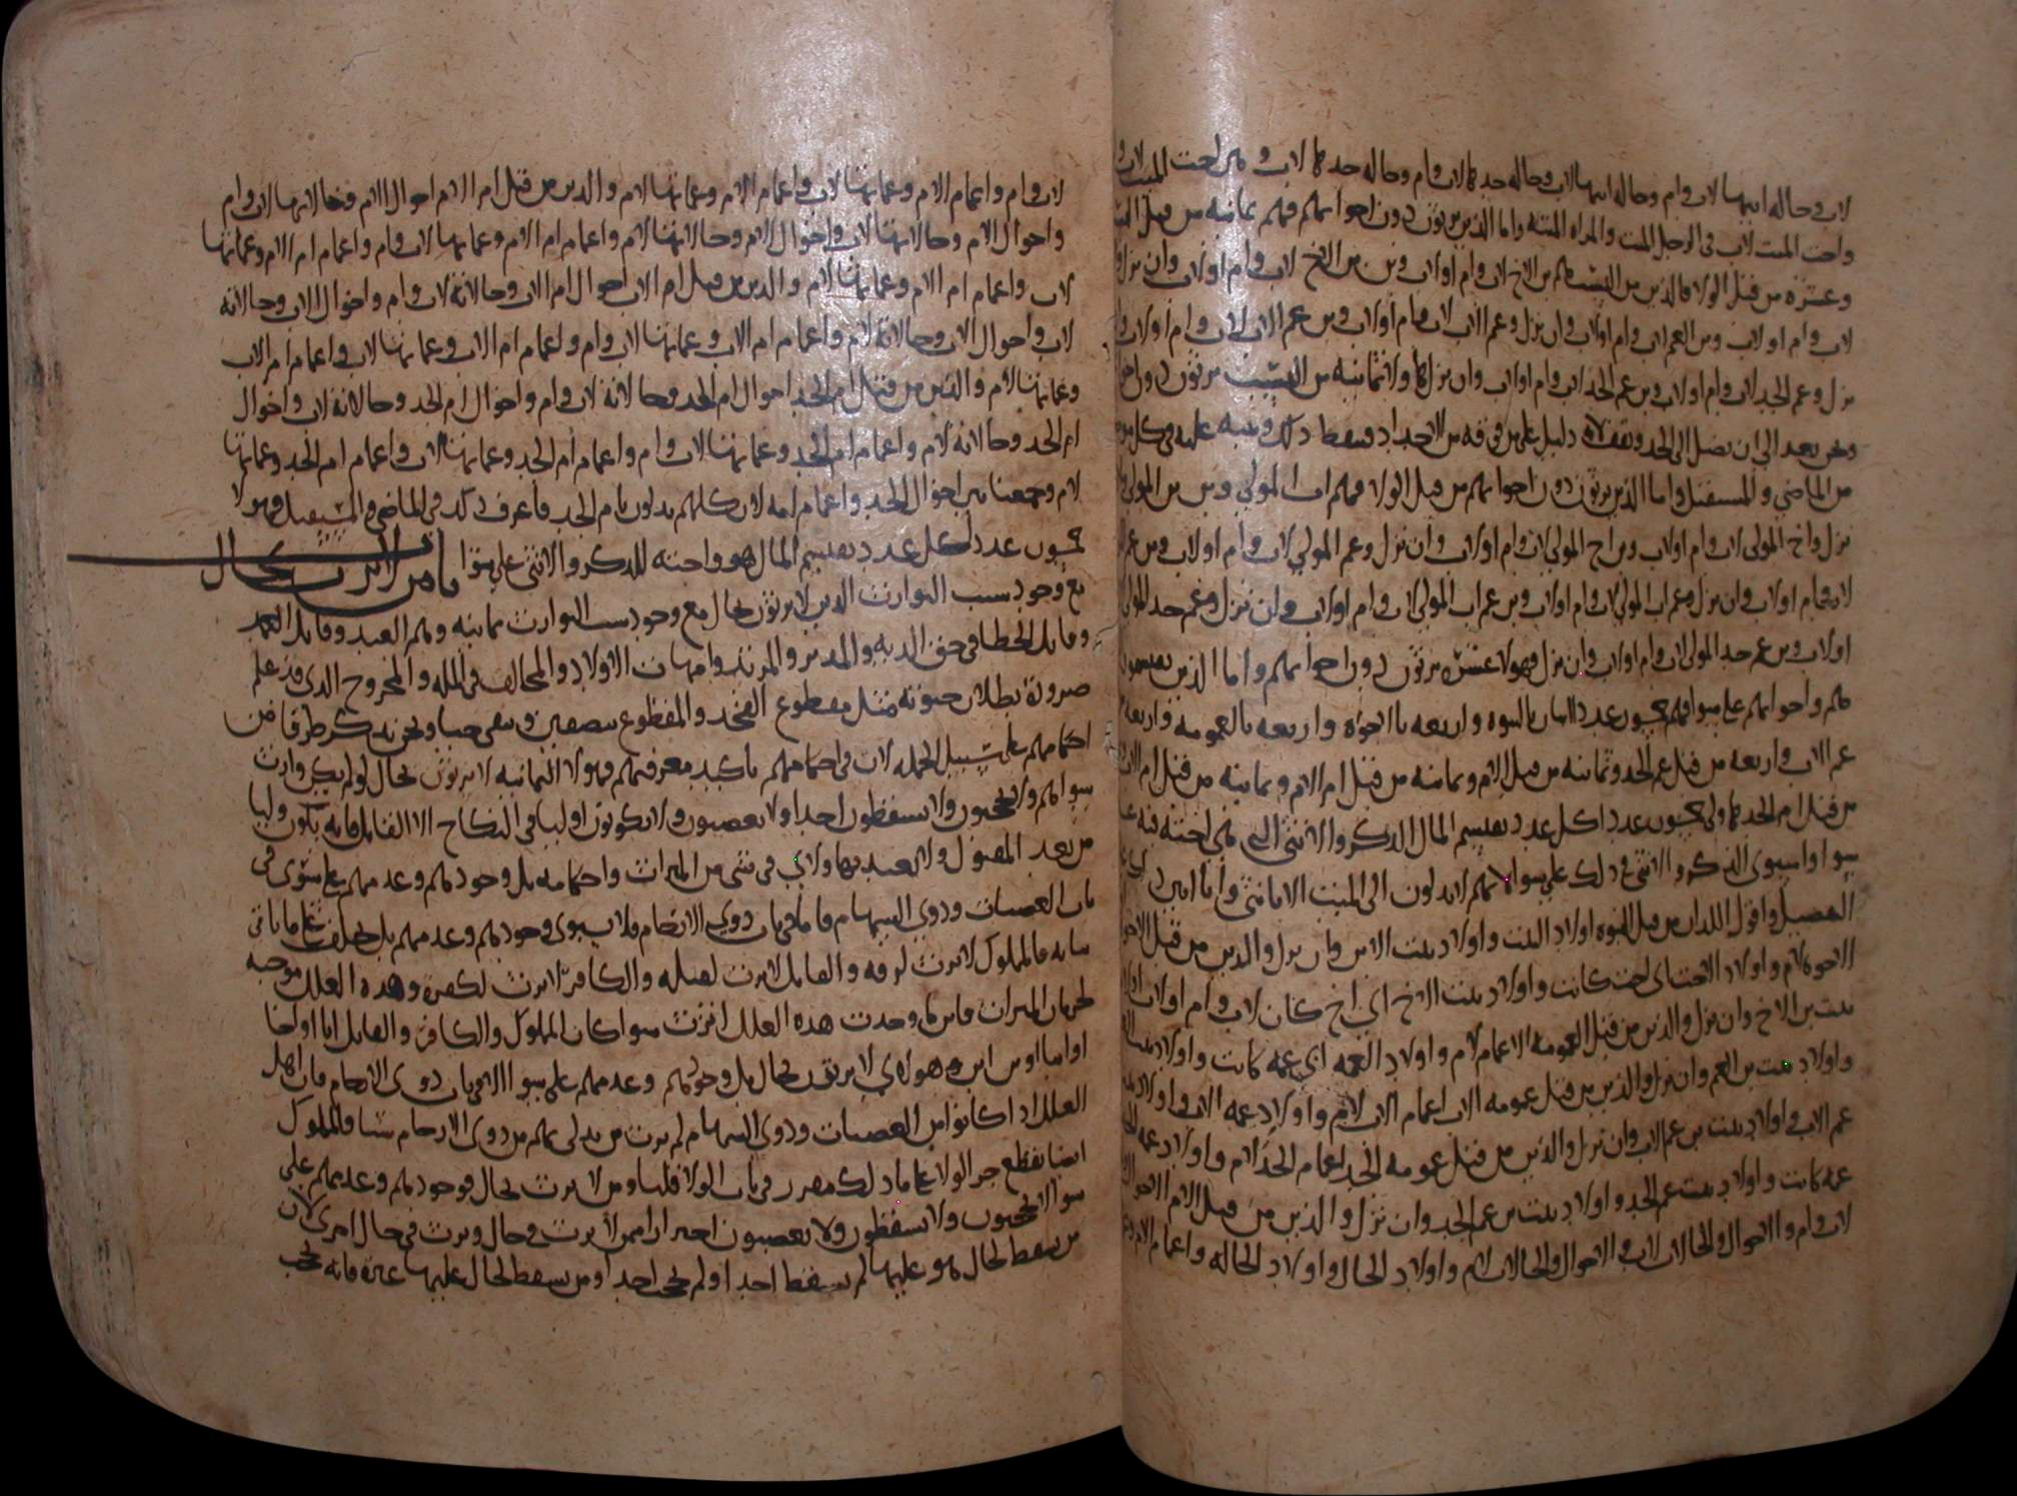 لاب وخاله ابيها لاب وام وخاله ابيها لاب وخاله جدها لاب وام وخاله جدها لاب و
واخت الميت لاب في الرجل الميت والمراه الميته واما الذين يرثون دون اخواتهم فهم ثمانيه من قبل
وعشره من قبل الولا فالذين من النسب هم بن الاخ لاب وام او لاب وبن بن الاخ لاب وام او لاب وان نزل
لاب وام او لاب وبن العم لاب وام او لاب وان نزل وعم الاب لاب وام او لاب وبن عم الاب لاب وام او لاب
نزل وعم الجد لاب وام او لاب وبن عم الجد لاب وام او لاب وان نزل هاولا ثمانيه من النسب يرثون دون
ونحن بعد الى ان نصل الى الجد دليل على من فوقه من الاجداد فنسقط ذلك وننبه عليه في كل
من الماضي والمستقبل واما الذين يرثون دون اخواتهم من قبل الولا فهم ابن المولى وبن بن المولى
نزل واخ المولى لاب وام او لاب وبن اخ المولى لاب وام او لاب وان نزل وعم المولى لاب وام او لاب وبن عم
لاب وام او لاب وان نزل وعم اب المولى لاب وام او لاب وبن عم اب المولى لاب وام او لاب وان نزل وعم جد المولى
او لاب وبن عم جد المولى لاب وام او لاب وان نزل فهولا عشره يرثون دون اخواتهم واما الذين
هم واخواتهم على سوا فهم خمسون عددا اثنان بالبنوه واربعه بالاخوه واربعه بالعمومه واربعه
عم الاب واربعه من قبل عم الجد وثمانيه من قبل الام وثمانيه من قبل ام الام وثمانيه من قبل ام الاب
من قبل ام الجد خمسون عددا كل عدد يقسم المال الذكر والانثى فيه
سوا واستوى الذكر والانثى في ذلك على سوا لانهم لا يدلون الى الميت الا بانثى وانا ابين ذلك
التفصيل واقول اللذان من قبل البنوه اولاد البنت واولاد بنت الابن وان نزل والذين من قبل الاخوه
الاخوه لام واولاد الاخت اي اخت كانت واولاد بنت الاخ اي اخ كان لاب وام او لاب
بنت بن الاخ وان نزل والذين من قبل العمومه الاعمام لام واولاد العمه اي عمه كانت واولاد
واولاد بنت بن العم وان نزل والذين من قبل عمومه الاب اعمام الاب لام واولاد عمه الاب واولاد
عم الاب واولاد بنت بن عم الاب وان نزل والذين من قبل عمومه الجد اعمام الجد لام واولاد عمه
عمه كانت واولاد بنت عم الجد واولاد بنت بن عم الجد وان نزل والذين من قبل الام الاخوال
لاب وام والاخوال والخالات لاب والاخوال والخالات لام واولاد الخال واولاد الخاله واعمام الام
لاب وام واعمام الام وعماتها لاب واعمام الام وعماتها لام والذين من قبل ام الام اخوال الام وخالاتها لاب وام
واخوال الام وخالاتها لاب واخوال الام وخالاتها لام واعمام ام الام وعماتها لاب وام واعمام ام الام وعماتها
لاب واعمام ام الام وعماتها لام والذين من قبل ام الاب اخوال ام الاب وخالاته لاب وام واخوال الاب وخالاته
لاب واخوال الاب وخالاته لام واعمام ام الاب وعماتها لاب وام واعمام ام الاب وعماتها لاب واعمام ام الاب
وعماتها لام والذين من قبل ام الجد اخوال ام الجد وخالاته لاب وام واخوال ام الجد وخالاته لاب واخوال
ام الجد وخالاته لام واعمام ام الجد وعماتها لاب وام واعمام ام الجد وعماتها لاب واعمام ام الجد وعماتها
لام وجمعنا بين اخوال الجد واعمام امه لان كلهم يدلون بام الجد فاعرف ذلك في الماضي والمستقبل فهولا
خمسون عددا كل عدد يقسم المال هو واخته للذكر والانثى على سوا باب من لا يرث بحال
مع وجود سبب التوارث الذين لا يرثون بحال مع وجود سبب التوارث ثمانيه وهم العبد وقاتل العمد
وقاتل الخطا في حق الديه والمدبر والمرتد وامهات الاولاد والمخالف في المله والمجروح الذي قد علم
ضرورة بطلان حيوته مثل مقطوع الفخذ والمقطوع بنصفين وبقي حيا ونحن نذكر طرفا من
احكامهم على سبيل الجمله لان في احكامهم تاكيد معرفتهم فهولا الثمانيه لا يرثون بحال لو لم يكن وارث
سواهم ولا يحجبون ولا يسقطون احدا ولا يعصبون ولا يكونون اوليا في النكاح الا القاتل فانه يكون وليا
من بعد المقتول والعبد في شي من الميراث واحكامه بل وجودهم وعدمهم على سوى في
باب العصبات وذوي السهام فاما في باب ذوي الارحام فلا يستوي وجودهم وعدمهم بل يختلف على ما ياتي
بيانه فالمملوك لا يرث لرقه والقاتل لا يرث لقتله والكافر لا يرث لكفره وهذه العلل موجبه
لحرمان الميراث فاينما وجدت هذه العلل اثرت سوا كان المملوك والكافر والقاتل ابا او اخا
او ابنا او بن ابن وهولاي لا يرثون بحال بل وجودهم وعدمهم على سوا الا في باب ذوى الارحام فان اهل
العلل اذا كانوا من العصبات وذوي السهام لم يرث من يدلى بهم من ذوى الارحام شيا والمملوك
ايضا يقطع جر الولا على ما ذلك مقرر في باب الولا قلنا ومن لا يرث بحال فوجودهم وعدمهم على
سوا لا يحجبون ولا يسقطون ولا يعصبون احترازا ممن لا يرث في حال ويرث في حال اخرى لان
من يسقط لحال هو عليها لم يسقط احدا ولم يحجب احدا ومن يسقط لحال عليها غيره فانه يحجب